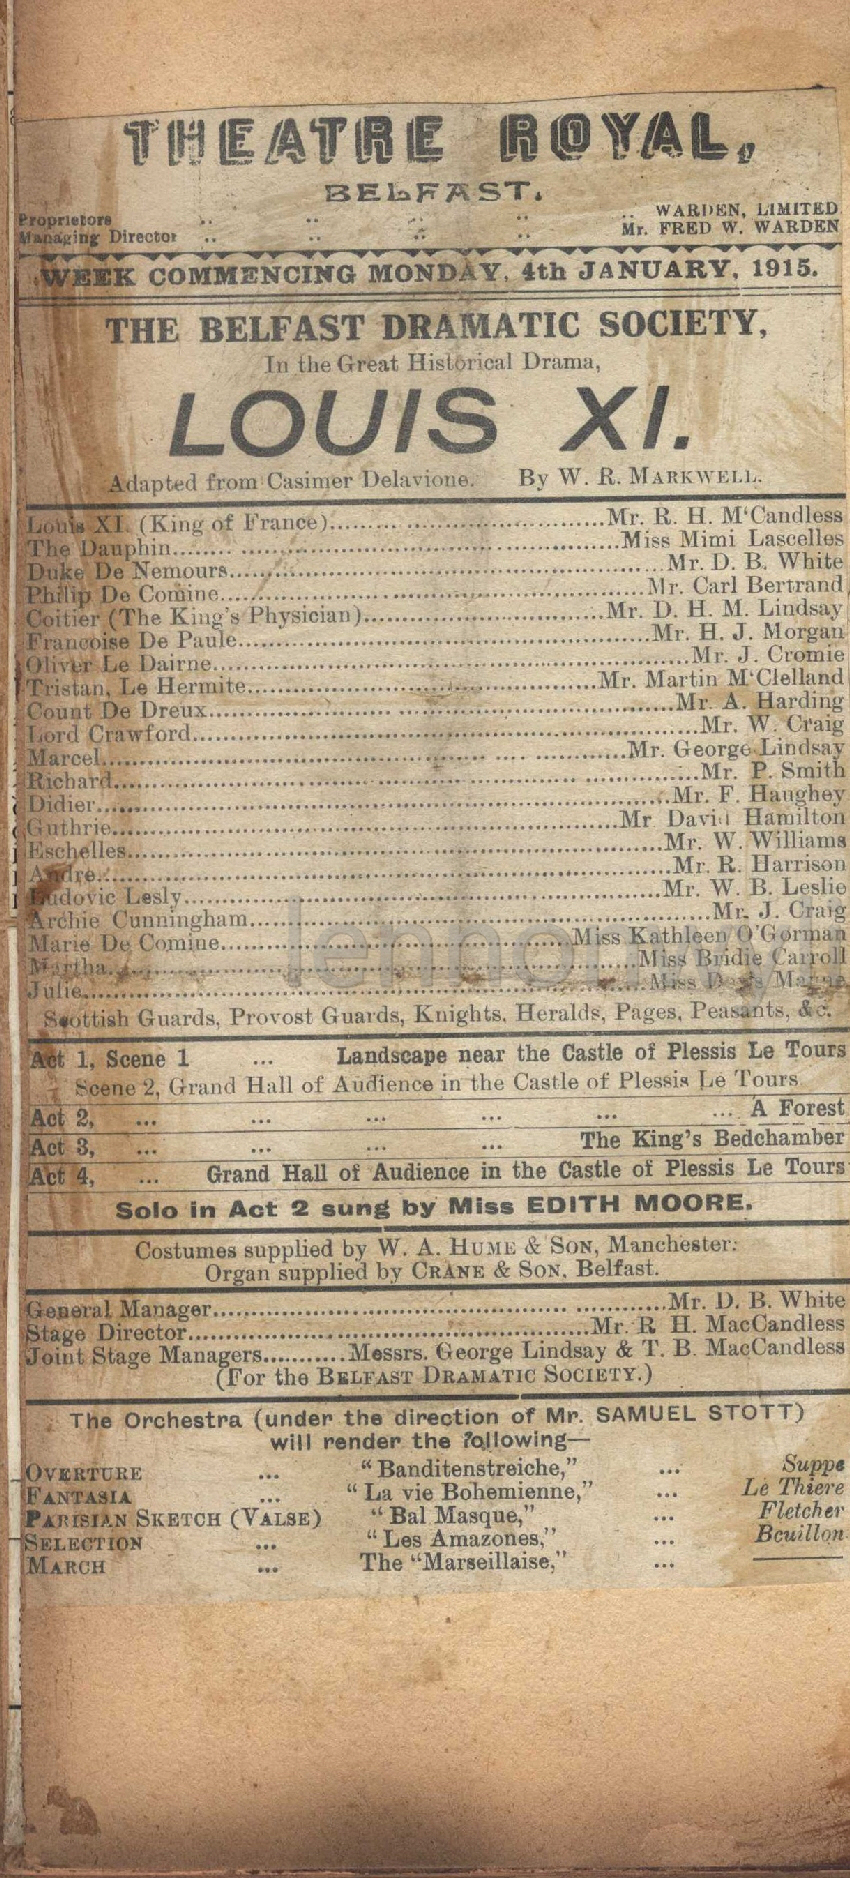 THEATRE ROYAL,
BELFAST.
Proprietors .. .. .. .. .. WARDEN, LIMITED
Managing Director .. .. .. .. Mr. FRED W. WARDEN
WEEK COMMENCING MONDAY, 4th JANUARY, 1915.
THE BELFAST DRAMATIC SOCIETY,
In the Great Historical Drama,
LOUIS XI.
Adapted from Casimer Delavione. By W. R. MARKWELL.
Louis XI. (King of France)..............................Mr. R. H. M'Candless
The Dauphin..............................Miss Mimi Lascelles
Duke De Nemours..............................Mr. D. B. White
Philip De Comine..............................Mr. Carl Bertrand
Coitier (The King's Physician)..............................Mr. D. H. M. Lindsay
Francoise De Paule..............................Mr. H. J. Morgan
Oliver Le Dairne..............................Mr. J. Cromie
Tristan, Le Hermite..............................Mr. Martin M'Clelland
Count De Dreux..............................Mr. A. Harding
Lord Crawford..............................Mr. W. Craig
Marcel..............................Mr. George Lindsay
Richard..............................Mr. P. Smith
Didier..............................Mr. F. Haughey
Guthrie..............................Mr David Hamilton
Eschelles..............................Mr. W. Williams
Andre..............................Mr. R. Harrison
Ludovic Lesly..............................Mr. W. B. Leslie
Archie Cunningham..............................Mr. J. Craig
Marie De Comine..............................Miss Kathleen O'Gorman
Martha..............................Miss Bridie Carroll
Julie..............................Miss
Scottish Guards, Provost Guards, Knights, Heralds, Pages, Peasants, &c.
Act 1, Scene 1 ... Landscape near the Castle of Plessis Le Tours
Scene 2, Grand Hall of Audience in the Castle of Plessis Le Tours
Act 2, ... ... ... ... ... ... A Forest
Act 3, ... ... ... ... The King's Bedchamber
Act 4, ... Grand Hall of Audience in the Castle of Plessis Le Tours
Solo in Act 2 sung by Miss EDITH MOORE.
Costumes supplied by W. A. HUME & SON, Manchester.
Organ supplied by CRANE & SON, Belfast.
General Manager..............................Mr. D. B. White
Stage Director..............................Mr. R H. MacCandless
Joint Stage Managers...........Messrs. George Lindsay & T. B. MacCandless
(For the BELFAST DRAMATIC SOCIETY.)
The Orchestra (under the direction of Mr. SAMUEL STOTT)
will render the following—
OVERTURE ... "Banditenstreiche," ... Suppe
FANTASIA ... "La vie Bohemienne," ... Le Thiere
PARISIAN SKETCH (VALSE) "Bal Masque," ... Fletcher
SELECTION ... "Les Amazones," ... Bouillon
MARCH ... The "Marseillaise," ...